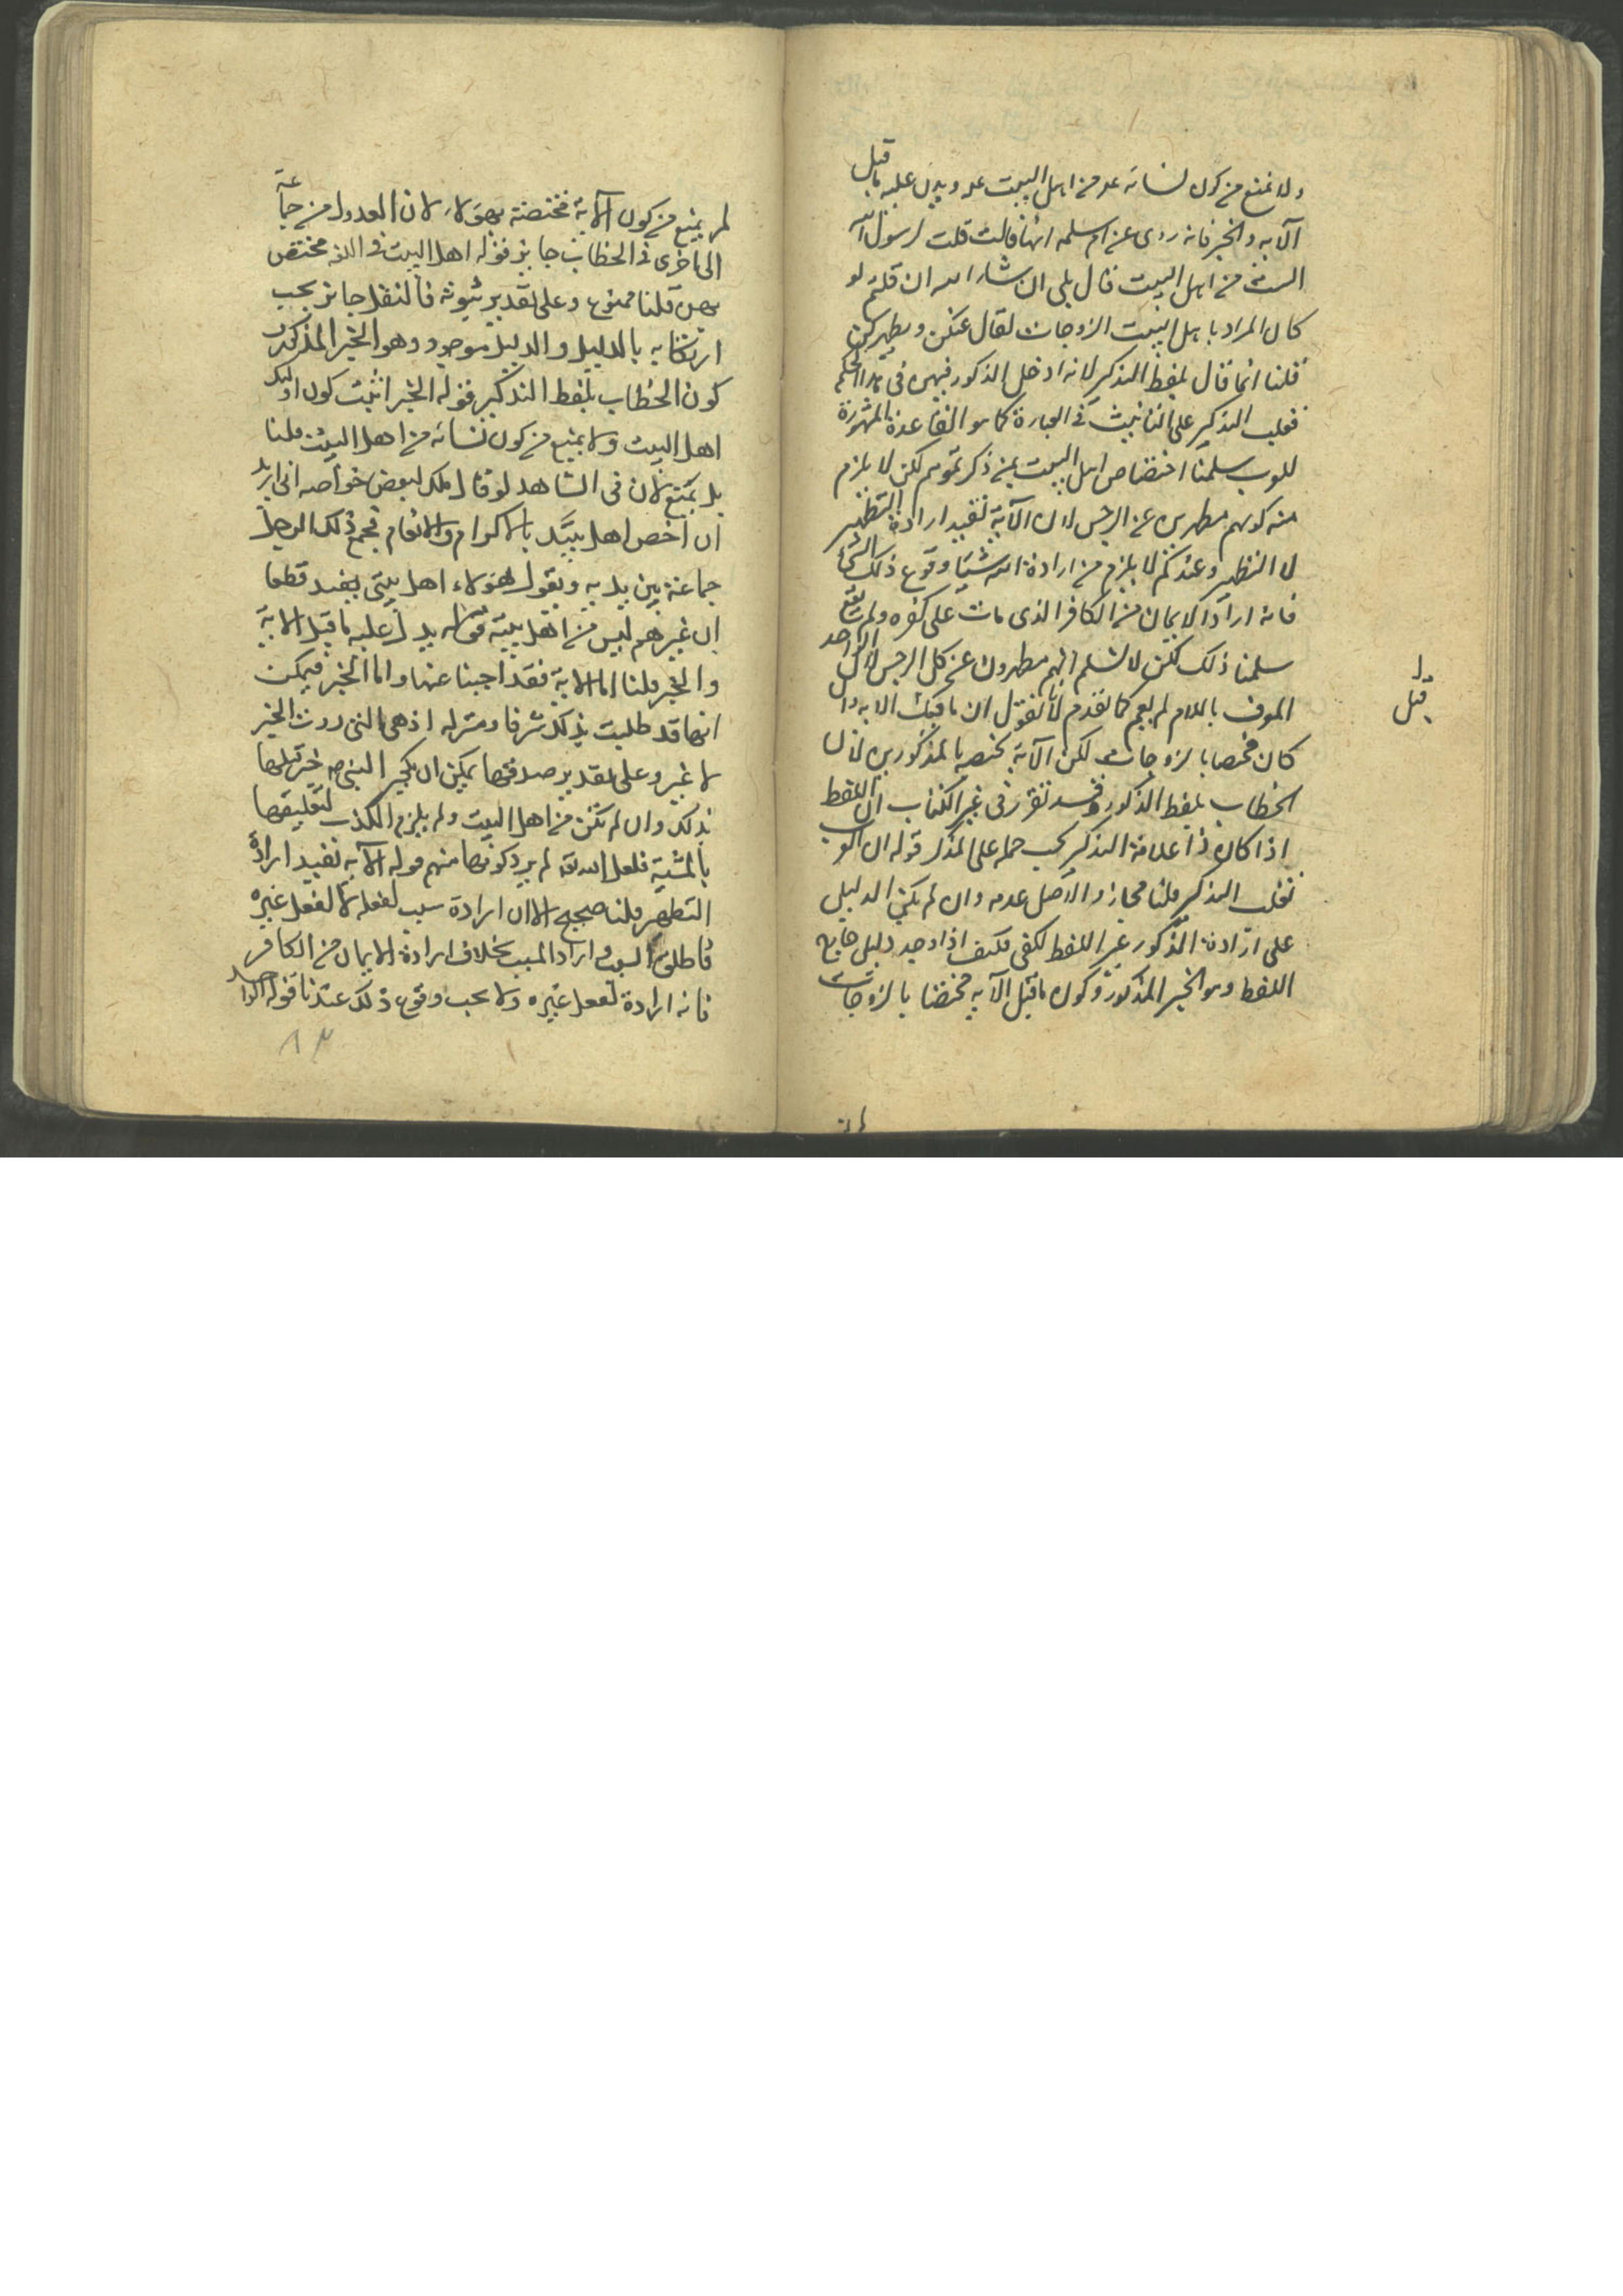 ولا نمنع من كون نسائه عم من اهل البيت عم ويدل عليه ما قبل
الآية والخبر فانه روى عن ام سلمه انها قالت قلت لرسول الله
الست من اهل البيت قال بلى ان شاء الله ان قلتم لو
كان المراد باهل البيت الزوجات لقال عنكن ويطهركن
قلنا انما قال بلفظ التذكير لانه ادخل الذكور فيهن فى هذا الحكم
فغلب التذكير على التانيث فى العبارة كما هو القاعدة المشهورة
للعرب سلمنا اختصاص اهل البيت بمن ذكرتموهم لكن لا يلزم
منه كونهم مطهرين عن الرجس لان الآية تفيد ارادة التطهير
لا التطهير وعندكم لا يلزم من ارادة الله شيئا وقوع ذلك الشئ
فانه اراد الايمان من الكافر الذى مات على كفره ولم يقع
سلمنا ذلك لكن لا نسلم انهم مطهرون عن كل الرجس لان الواحد
المعرف باللام لم يعم كما تقدم لانا نقول ان ما قبل الآية وان
كان مختصا بالزوجات لكن الآية تختص بالمذكورين لان
الخطاب بلفظ الذكور وقد تقرر فى غير الكتاب ان اللفظ
اذا كان ذا علامة التذكير يجب حمله على المذكر قوله ان العرب
تغلب التذكير قلنا مجاز والاصل عدمه وان لم يكن الدليل
على ارادة المذكور غير اللفظ لكفى فكيف اذا وجد دليل خارج
اللفظ وهو الخبر المذكور وكون ما قبل الآية مختصا بالزوجات
قبل
لم يمنع من كون الآية مختصة بهؤلاء لان العدول من جماعة
الى اخرى فى الخطاب جايز قوله اهل البيت فى اللغه مختص
بهن قلنا ممنوع وعلى تقدير ثبوته فالنقل جايز يجب
ارتكابه بالدليل والدليل موجود وهو الخبر المذكور
كون الخطاب بلفظ التذكير قوله الخبر اثبت كون اولئك
اهل البيت ولا يمنع من كون نسائه من اهل البيت قلنا
بل يمنع لان فى الشاهد لو قال ملك لبعض خواصه انى اريد
ان اخص اهل بيتك بالاكرام والانعام فجمع ذلك الرجل
جماعة بين يديه ويقول هؤلاء اهل بيتى يفيد قطعا
ان غيرهم ليس من اهل بيته قوله يدل عليه ما قبل الآية
والخبر قلنا اما الآية فقد اجبنا عنها واما الخبر فيمكن
انها قد طلبت بذلك شرفا ومنزله اذ هى التى روت الخبر
لا غير وعلى تقدير صدقها يمكن ان يجبر النبى ص خبر قلبها
بذلك وان لم تكن من اهل البيت ولم يلزم الكذب لتعليقها
بالمشية فلعل الله تعه لم يرد كونها منهم قوله الآية تفيد ارادة
التطهير قلنا صحيح الا ان ارادة سبب لفعله لا لفعل غيره
فاطلق السبب واراد المسبب بخلاف ارادة الايمان من الكافر
فانه ارادة لفعل غيره ولا يجب وقوع ذلك عندنا قوله الواحد